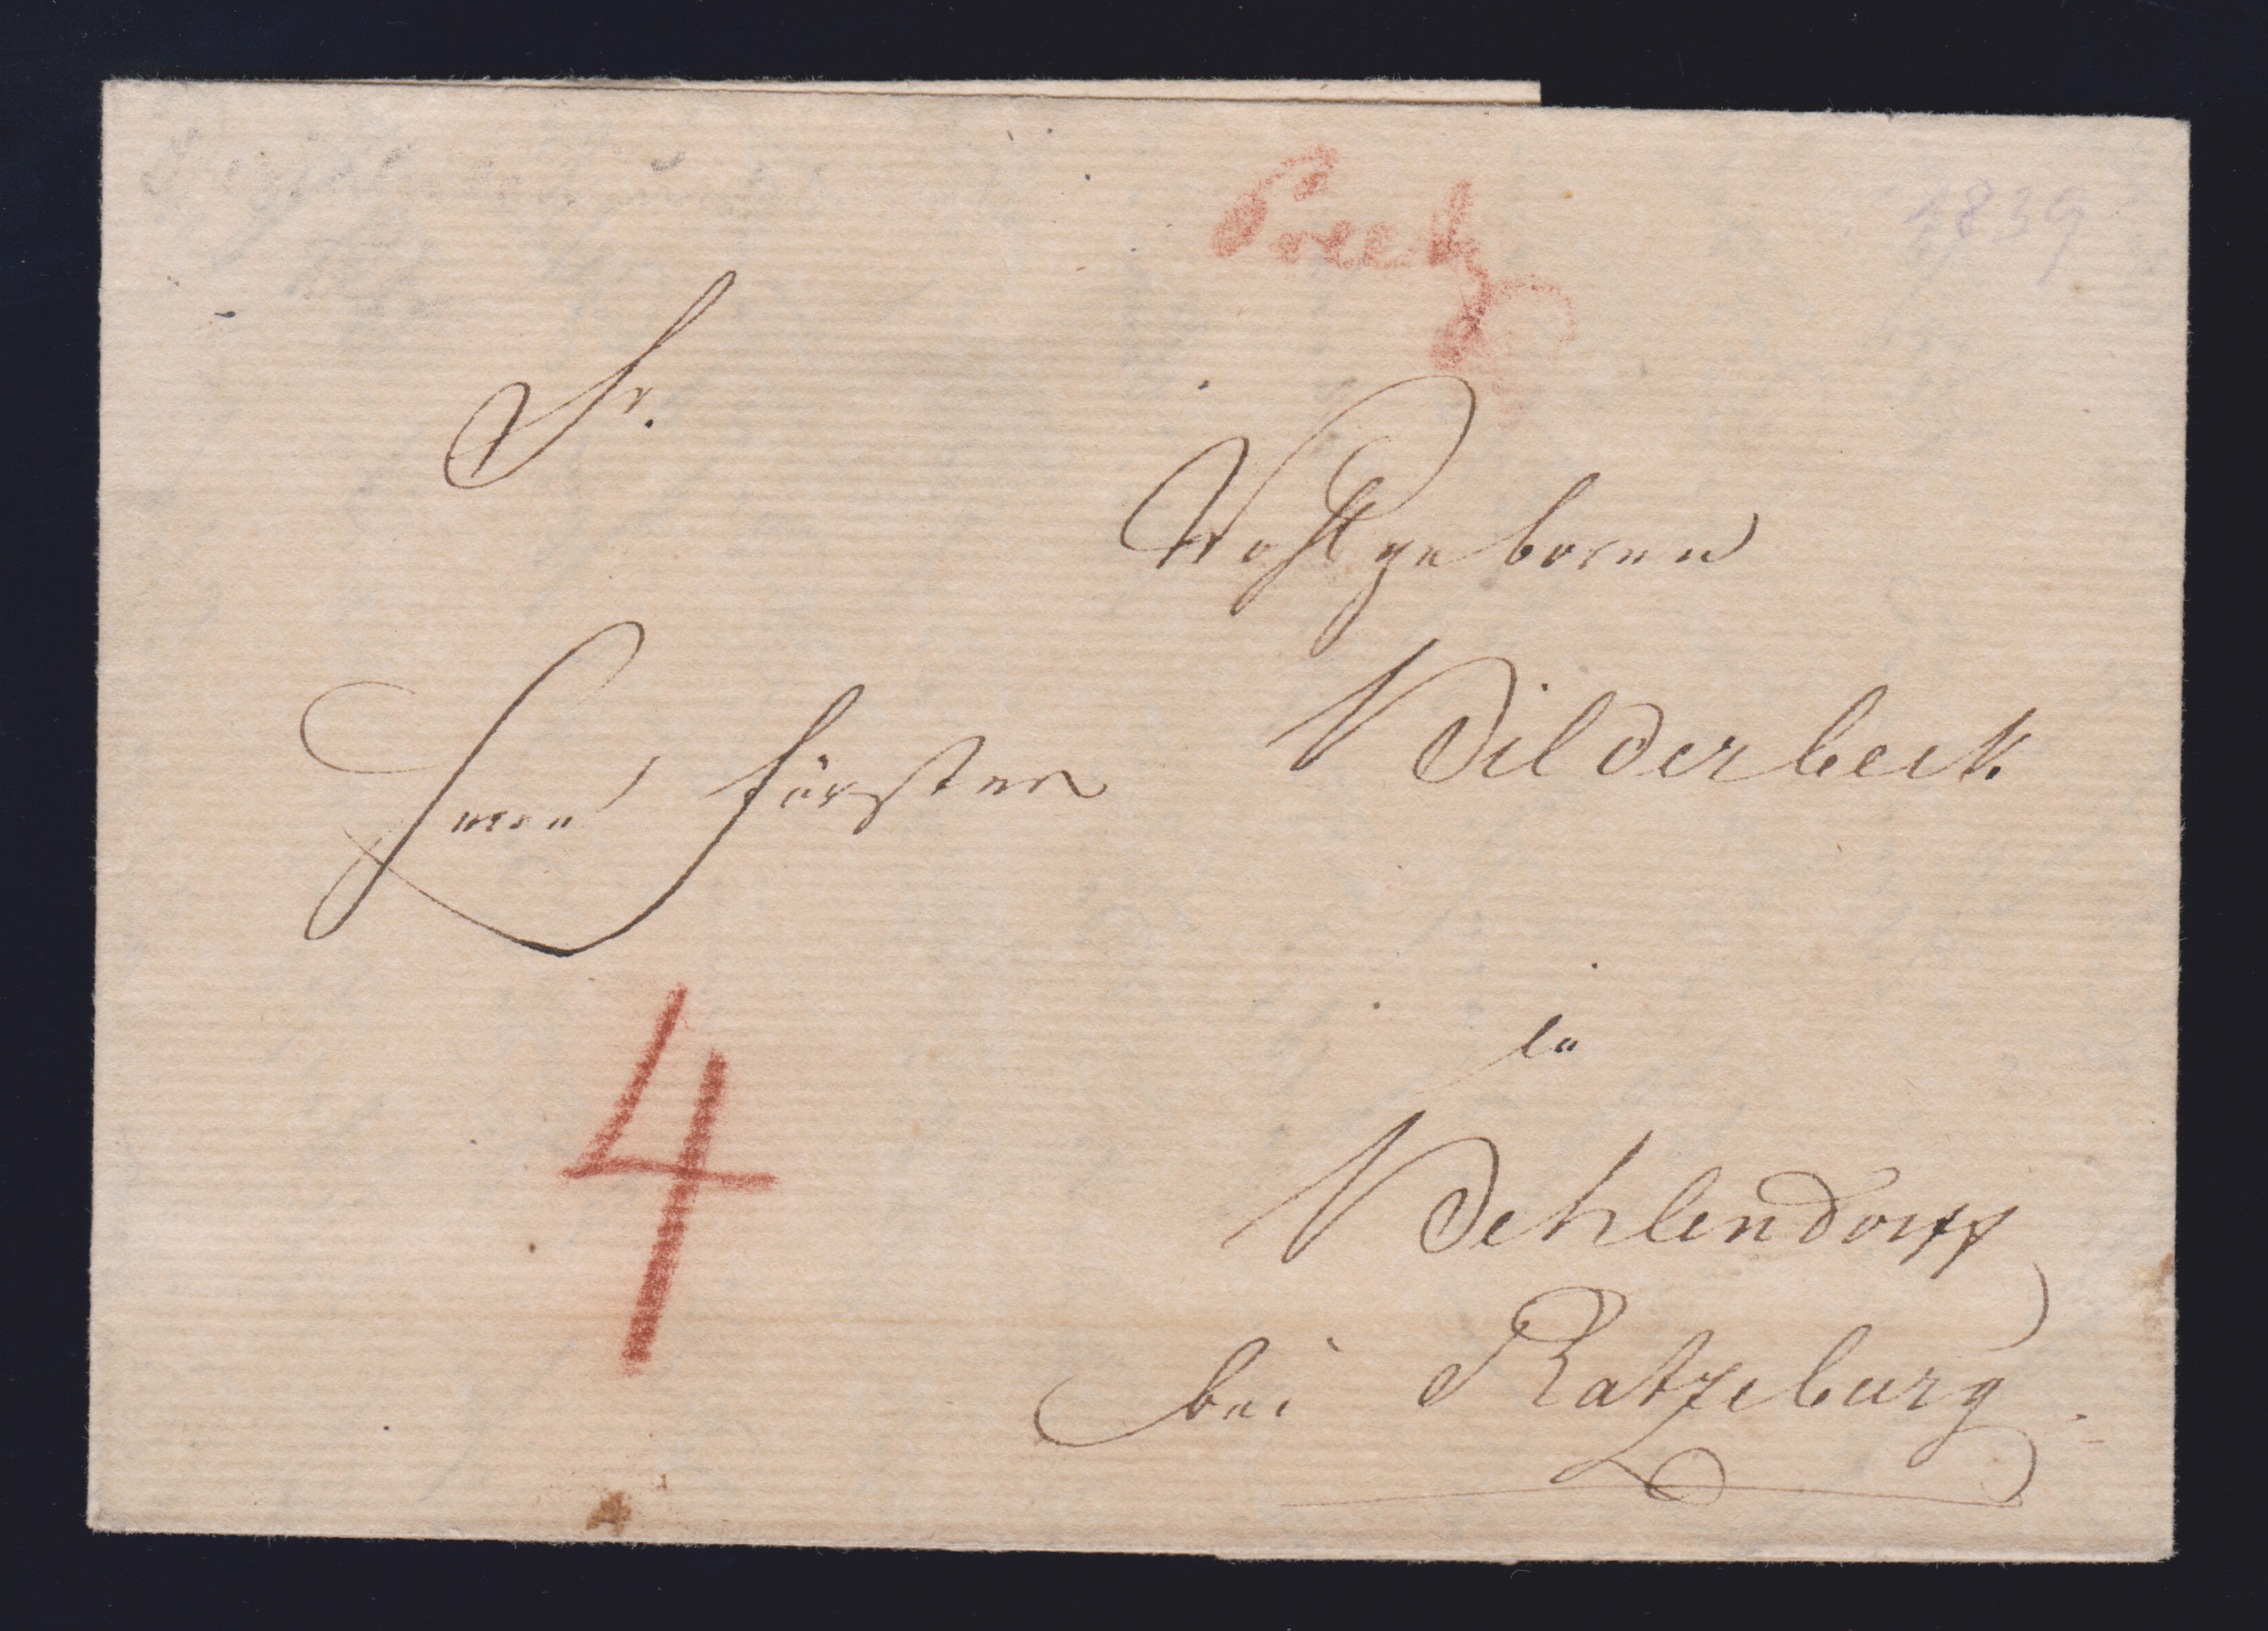 Preetz
1839
Sr.
Wohlgeboren
Herrn Förster Wilderbeck
in
Wehlendorff
bei Ratzeburg.
4